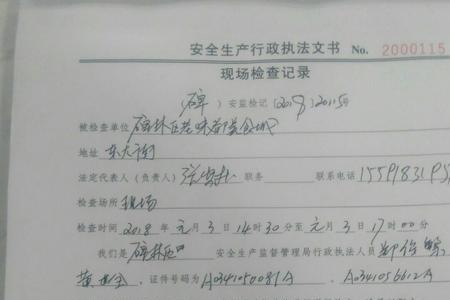 安全生产行政执法文书 No. 2000115
现场检查记录
(碑) 安监检记 [2018] 20115号
被检查单位 碑林区老味都美食城
地址 东大街
法定代表人 (负责人) 职务 联系电话 155918319
检查场所 现场
检查时间 2018 年 元 月 3 日 14 时 30 分至 元 月 3 日 17 时 00 分
我们是 碑林区 安全生产监督管理局行政执法人员
, 证件号码为 A0341050081A 、 A0341056612A